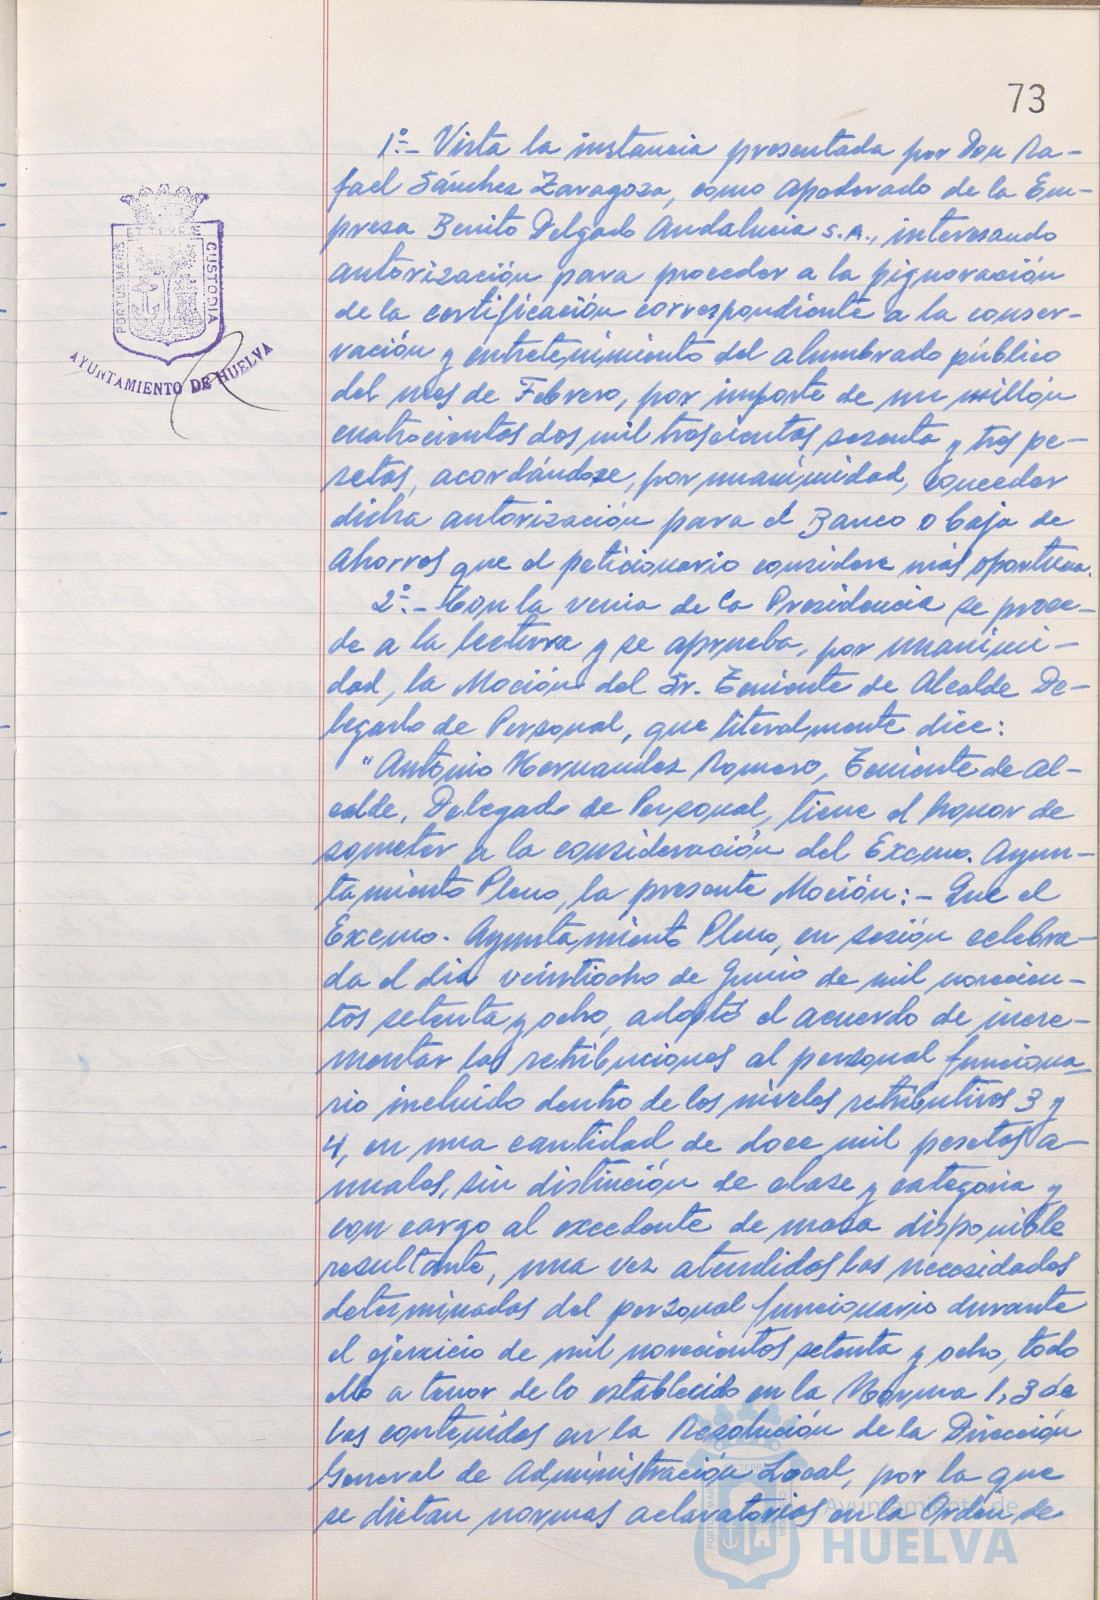 73
1º.- Vista la instancia presentada por Don Ra-
fael Sánchez Zaragoza, como apoderado de la Em-
presa Benito Delgado Andalucia S.A., interesando
autorización para proceder a la pignoración
de la certificación correspondiente a la conser-
vación y entretenimiento del alumbrado público
del mes de Febrero, por importe de un millón
cuatrocientos dos mil trescientas sesenta y tres pe-
setas, acordándose, por unanimidad, conceder
dicha autorización para el Banco o Caja de
Ahorros que el peticionario considere más oportuna.
2º.- Con la venia de la Presidencia se proce-
de a la lectura y se aprueba, por unanimi-
dad, la Moción del Sr. Teniente de Alcalde De-
legado de Personal, que literalmente dice:
"Antonio Hernandez Romero, Teniente de Al-
calde, Delegado de Personal, tiene el honor de
someter a la consideración del Excmo. Ayun-
tamiento Pleno, la presente Moción:- Que el
Excmo. Ayuntamiento Pleno, en sesión celebra-
da el dia veintiocho de Junio de mil novecien-
tos setenta y ocho, adoptó el acuerdo de incre-
mentar las retribuciones al personal funciona-
rio incluido dentro de los niveles retributivos 3 y
4, en una cantidad de doce mil pesetas a-
nuales, sin distinción de clase y categoria y
con cargo al excedente de masa disponible
resultante, una vez atendidas las necesidades
determinadas del personal funcionario durante
el ejercicio de mil novecientos setenta y ocho, todo
ello a tenor de lo establecido en la Norma 1,3 de
las contenidas en la Resolución de la Dirección
General de Administración Local, por la que
se dictan normas aclaratorias en la Orden de
PORTUS MARIS ET TERRE CUSTODIA
AYUNTAMIENTO DE HUELVA
Ayuntamiento de
HUELVA